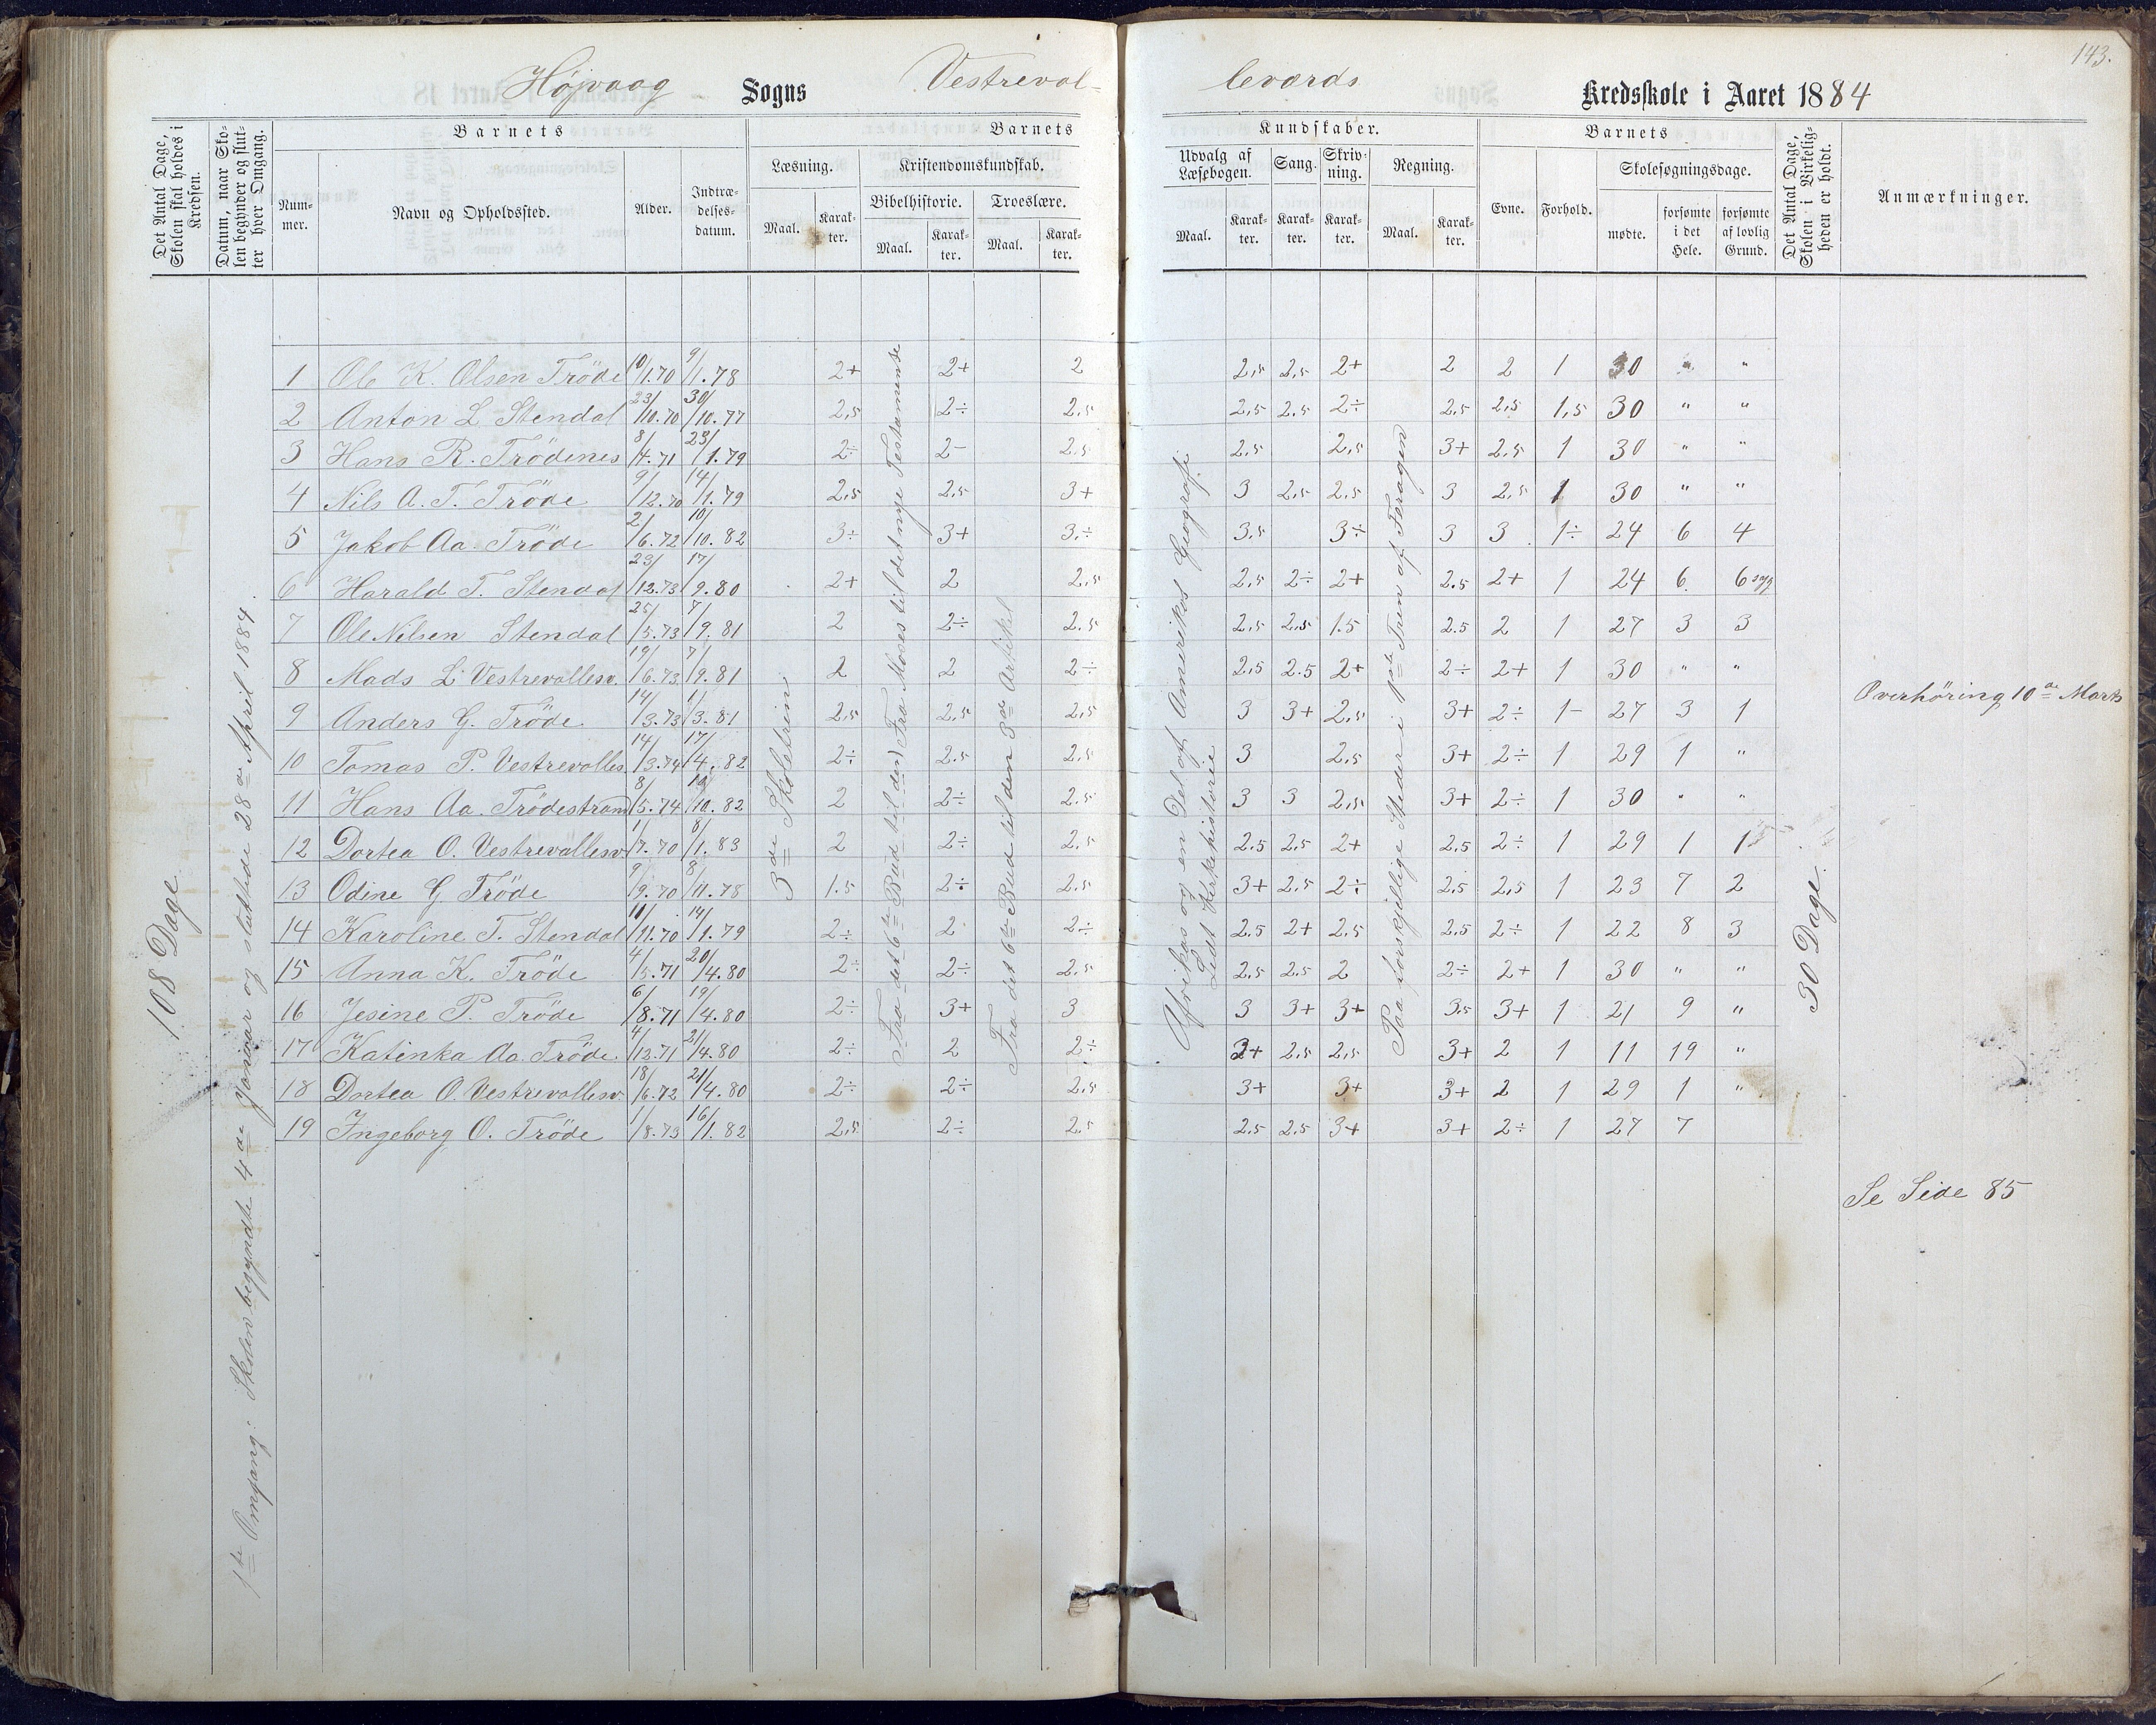 143.
Højvaag Sogns Vestrevol-
levards Kredsskole i Aaret 1884
Det Antal Dage, Skolen skal holdes i Kredsen.
Datum, naar Skolen begynder og slutter hver Omgang.
Barnets
Nummer.
Navn og Opholdssted.
Alder.
Indtrædelsesdatum.
Barnets
Læsning.
Maal.
Karakter.
Kristendomskundskab.
Bibelhistorie.
Maal.
Karakter.
Troeslære.
Maal.
Karakter.
Kundskaber.
Udvalg af Læsebogen.
Maal.
Karakter.
Sang.
Karakter.
Skrivning.
Karakter.
Regning.
Maal.
Karakter.
Barnets
Evne.
Forhold.
Skolesøgningsdage.
mødte.
forsømte i det Hele.
forsømte af lovlig Grund.
Det Antal Dage, Skolen i Virkeligheden er holdt.
Anmærkninger.
108 Dage
1ste Omgang: Skolen begyndte 4de Januar og sluttede 28de April 1884.
3de Skoletrin
Fra det 6te Bud til den) Fra Moses til det nye Testamente
Fra det 6te Bud til den 3de Artikel
Afrikas og en Del af Amerikas Geografi
Lidt Kirkehistorie
Paa forskjellige Steder i 1ste Tren af Foragen
30 Dage
1 Ole K. Olsen Tröde 10/1.70 9/1.78 2+ 2+ 2 2,5 2,5 2+ 2 2 1 30 " "
2 Anton L Stendal 23/10.70 30/10.77 2,5 2÷ 2.5 2,5 2.5 2÷ 2.5 2,5 1,5 30 " "
3 Hans R. Trödenes 8/4.71 23/1.79 2÷ 2- 2.5 2.5 2,5 3+ 2.5 1 30 " "
4 Nils A. T. Tröde 9/12.70 14/1.79 2,5 2,5 3+ 3 2,5 2,5 3 2,5 1 30 " "
5 Jakob Aa. Tröde 2/6.72 10/10.82 3÷ 3+ 3÷ 3,5 3÷ 3 3 1÷ 24 6 4
6 Harald T. Stendal 23/12.73 17/9.80 2+ 2 2,5 2,5 2÷ 2+ 2.5 2+ 1 24 6 6 syg
7 Ole Nilsen Stendal 25/5.73 7/9.81 2 2÷ 2.5 2,5 2,5 1.5 2.5 2 1 27 3 3
8 Mads L. Vestrevollesv. 19/6.73 7/9.81 2 2 2÷ 2.5 2.5 2+ 2÷ 2+ 1 30 " "
9 Anders G. Tröde 14/3.73 1/3.81 2,5 2,5 2,5 3 3+ 2,5 3+ 2÷ 1- 27 3 1 Overhöring 10de Marts
10 Tomas P. Vestrevolles. 14/3.74 17/4.82 2÷ 2.5 2.5 3 2,5 3+ 2÷ 1 29 1 "
11 Hans Aa. Trödestrand 8/5.74 10/10.82 2 2÷ 2.5 3 3 2,5 3+ 2÷ 1 30 " "
12 Dortea O. Vestrevollesv. 1/7.70 8/1.83 2 2÷ 2.5 2.5 2,5 2+ 2,5 2÷ 1 29 1 1
13 Odine G Tröde 9/9.70 8/11.78 1.5 2÷ 2.5 3+ 2,5 2÷ 2.5 2,5 1 23 7 2
14 Karoline T. Stendal 11/11.70 14/1.79 2÷ 2 2÷ 2.5 2+ 2.5 2.5 2÷ 1 22 8 3
15 Anna K. Tröde 4/5.71 20/4.80 2÷ 2÷ 2.5 2,5 2,5 2 2÷ 2+ 1 30 " "
16 Jesine P. Tröde 6/8.71 19/4.80 2÷ 3+ 3 3 3+ 3+ 3.5 3+ 1 21 9 "
17 Katinka Aa. Tröde. 4/12.71 21/4.80 2÷ 2 2÷ 3+ 2,5 2,5 3+ 2 1 11 19 "
18 Dortea O. Vestrevollesv. 18/6.72 21/4.80 2÷ 2÷ 2.5 3+ 3+ 3+ 2 1 29 1 "
19 Ingeborg O. Tröde 1/8.73 16/1.82 2,5 2÷ 2.5 2.5 2.5 3+ 3+ 2÷ 1 27 7
Se Side 85